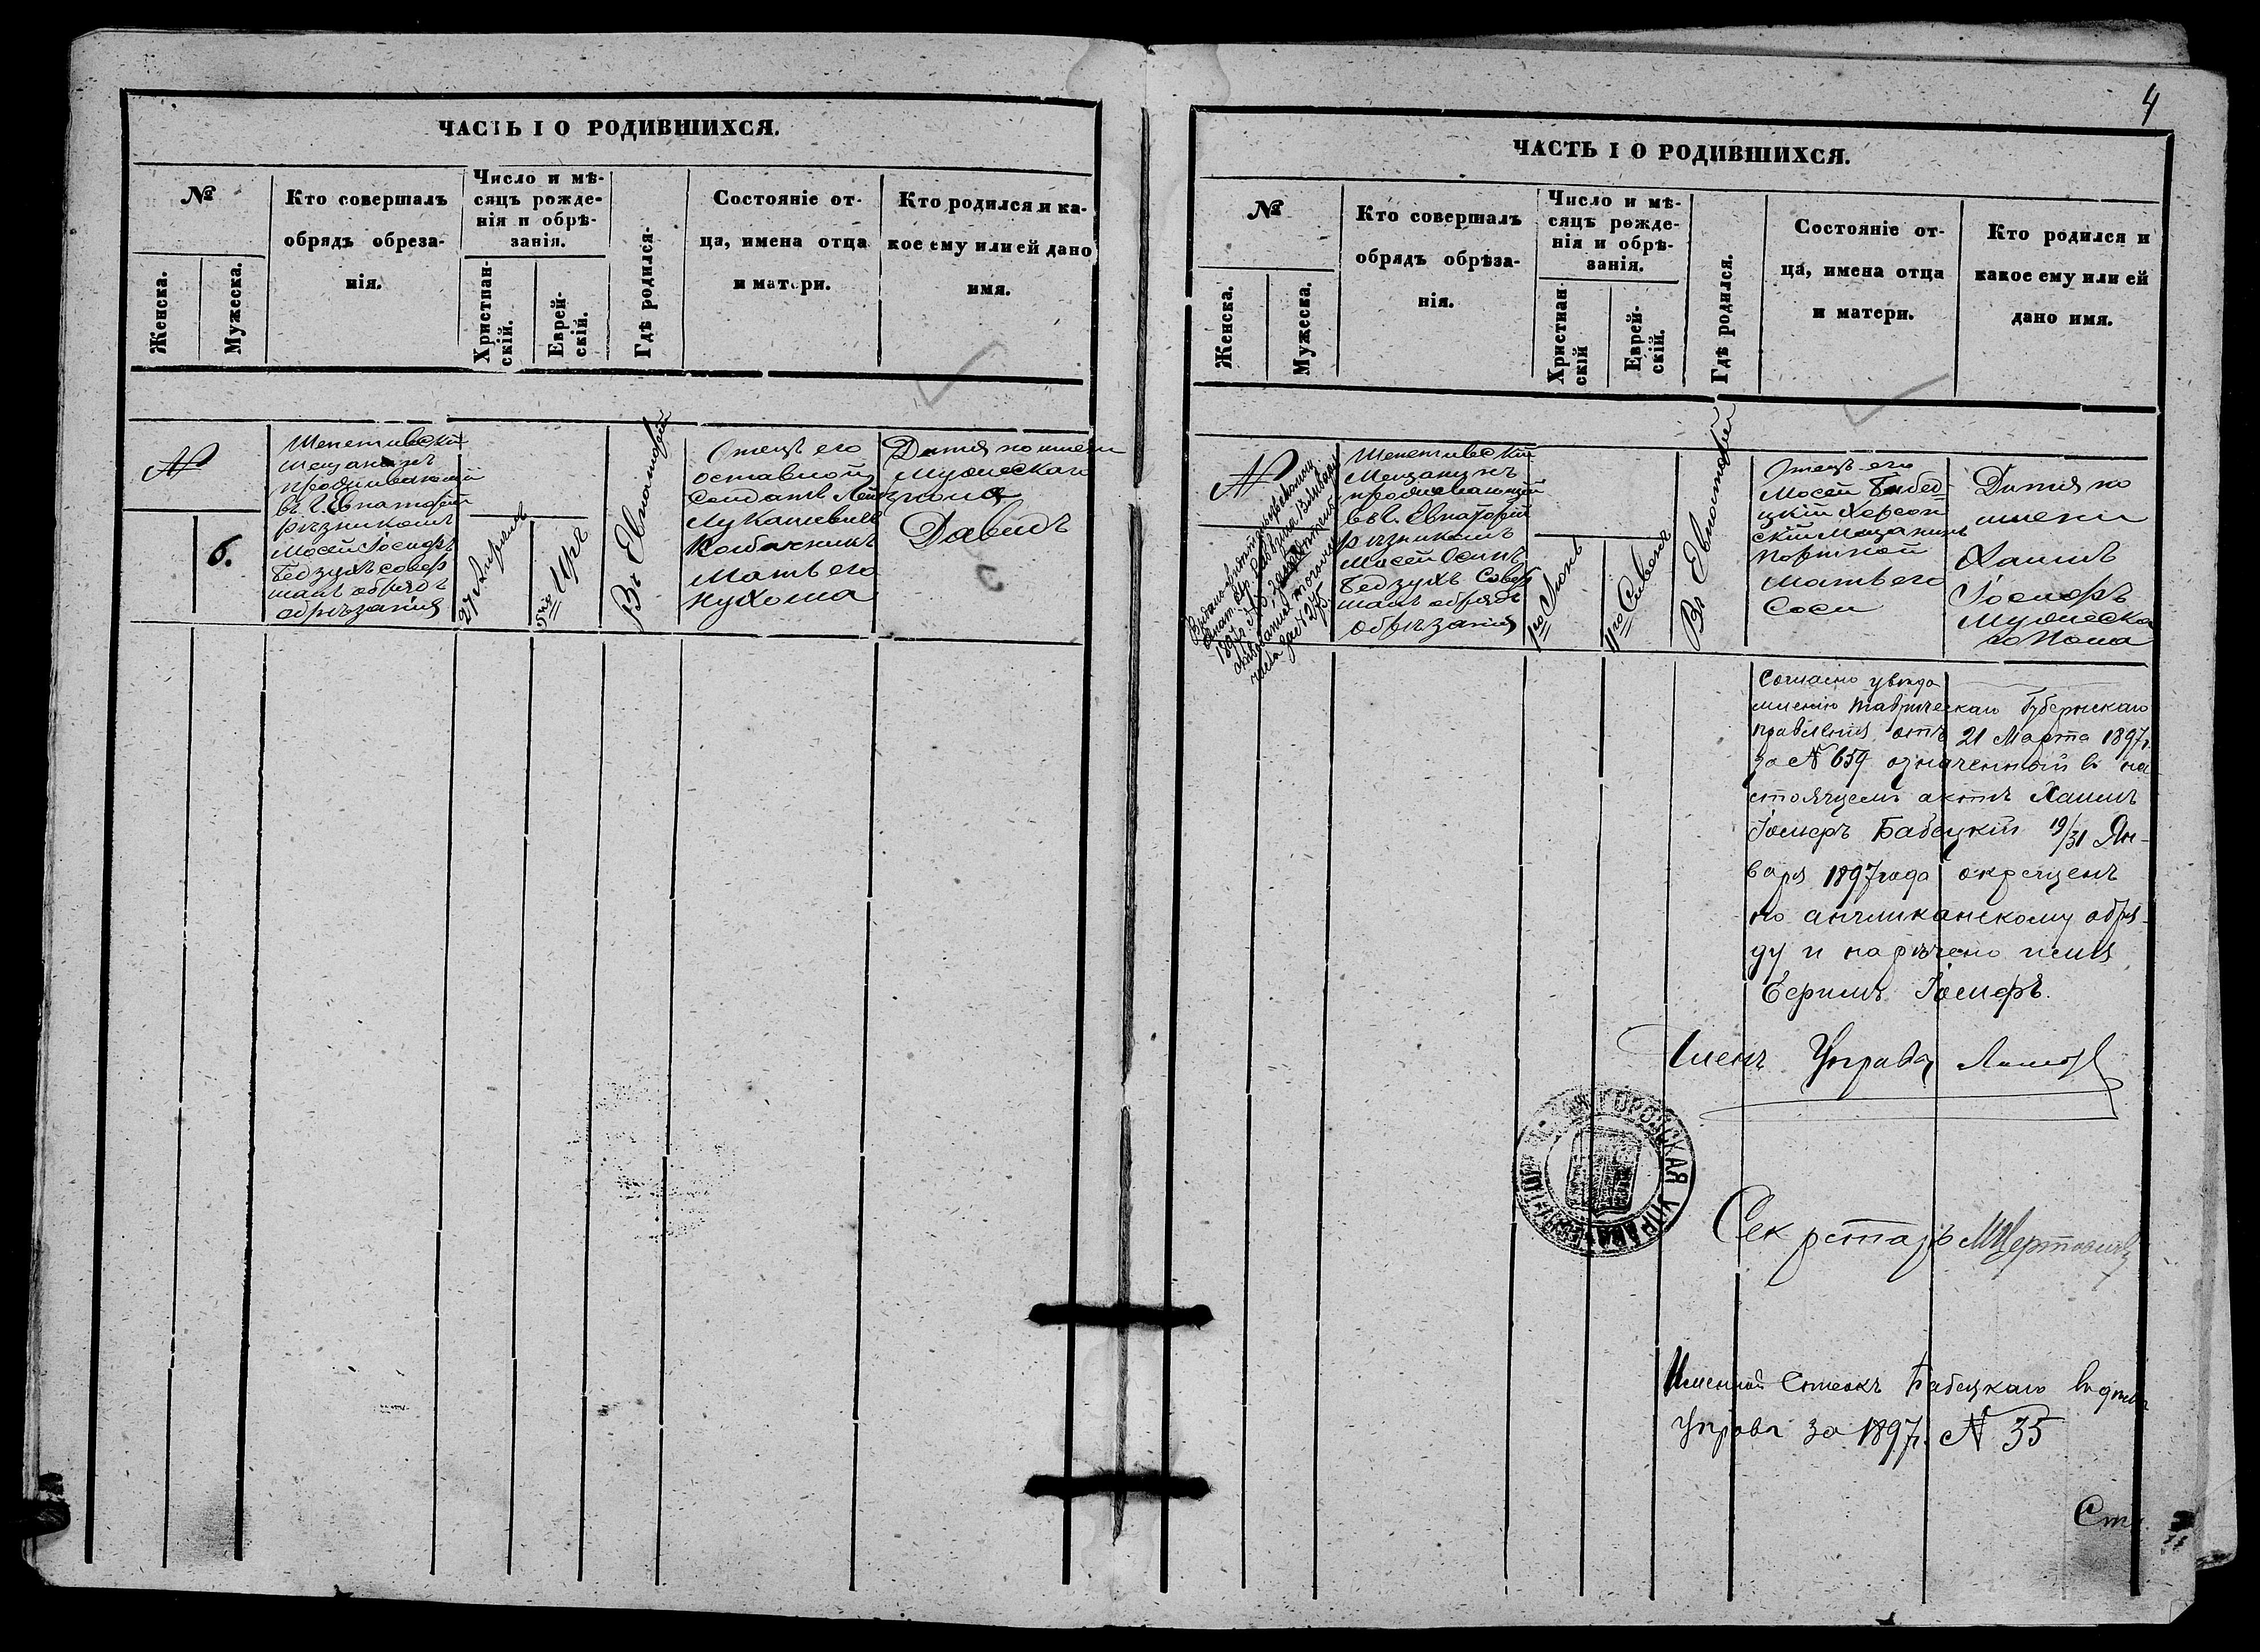 ЧАСТЬ I О РОДИВШИХСЯ.
№
Женска.
Мужеска.
Кто совершалъ
обрядъ обреза-
нія.
Число и мѣ-
сяцъ рожде-
нія и обрѣ-
занія.
Христіан-
скій.
Еврей-
скій.
Гдѣ родился.
Состояніе от-
ца, имена отца
и матери.
Кто родился и ка-
кое ему или ей дано
имя.
№
6.
Шепетивскій
мещанинъ
проживающій
въ г. Евпаторіи
рѣзникомъ
Мосей Іосифъ
Бедзухъ совер
шалъ обрядъ
обрѣзанія
27 Апреля
5го Иръ
Въ Евпаторіи
Отецъ его
отставной
Солдатъ Лей
Лукашевичъ
Колбасникъ
Мать его
Нухома
Дитя по имени
Мужескаго
пола
Давидъ
4
ЧАСТЬ I О РОДИВШИХСЯ.
№
Женска.
Мужеска.
Кто совершалъ
обрядъ обрѣза-
нія.
Число и мѣ-
сяцъ рожде-
нія и обрѣ-
занія.
Христиан-
скій
Еврей-
скій.
Гдѣ родился.
Состояніе от-
ца, имена отца
и матери.
Кто родился и
какое ему или ей
дано имя.
№
Шепетивскій
Мещанинъ
проживающій
въ г. Евпаторіи
рѣзникомъ
Мосей Осипъ
Бедзухъ Совер
шалъ обрядъ
обрѣзанія
1го Іюнь
11го Сивонъ
Въ Евпаторіи
Отецъ его
Мосей Бабец=
цкій Херсон
скій Мещанинъ
Портной
Мать его
Соси
Дитя по
имени
Хаимъ
Іосифъ
Мужеска
го Пола
Согласно уведо
мленію Таврическаго Губернскаго
правленія отъ 21 Марта 1897 г.
за № 659 означенный въ на
стоящемъ актѣ Хаимъ
Іосифъ Бабецкій 19/31 Ян-
варя 1897 года окрещенъ
по англиканскому обря-
ду и наречено имя
Ефимъ Іосифъ.
Членъ Управы
ГОРОДСКАЯ УПРАВА
Секретарь
Именной Списокъ Бабецкаго въ дѣлѣ
Управы за 1897 г. № 35
Ст